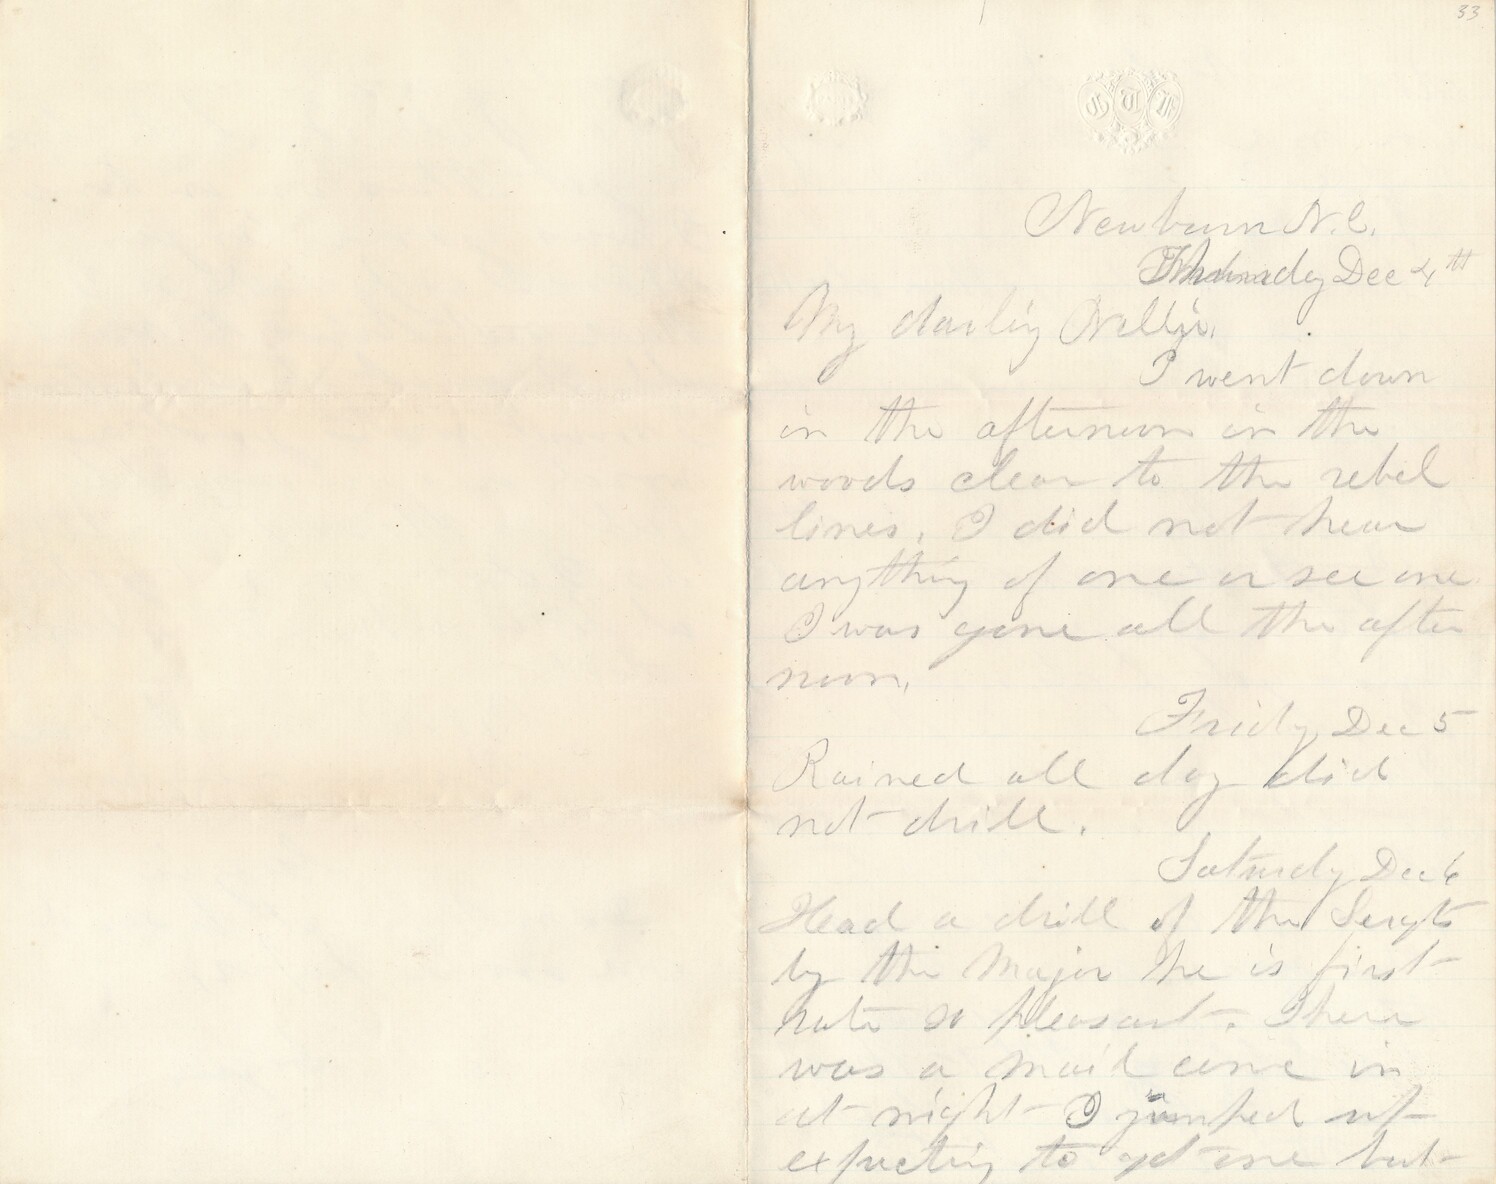 33
G T F
Newburn N.C.
Thursday Dec 4th
My darling Nellie.
I went down
in the afternoon in the
woods clear to the rebel
lines. I did not hear
anything of one or see one.
I was gone all the after
noon.
Friday Dec 5
Rained all day did
not drill.
Saturdy Dec 6
Head a drill of the Sergts
by the Major he is first
rate so pleasant. There
was a mail come in
at night I jumped up
expecting to get one but